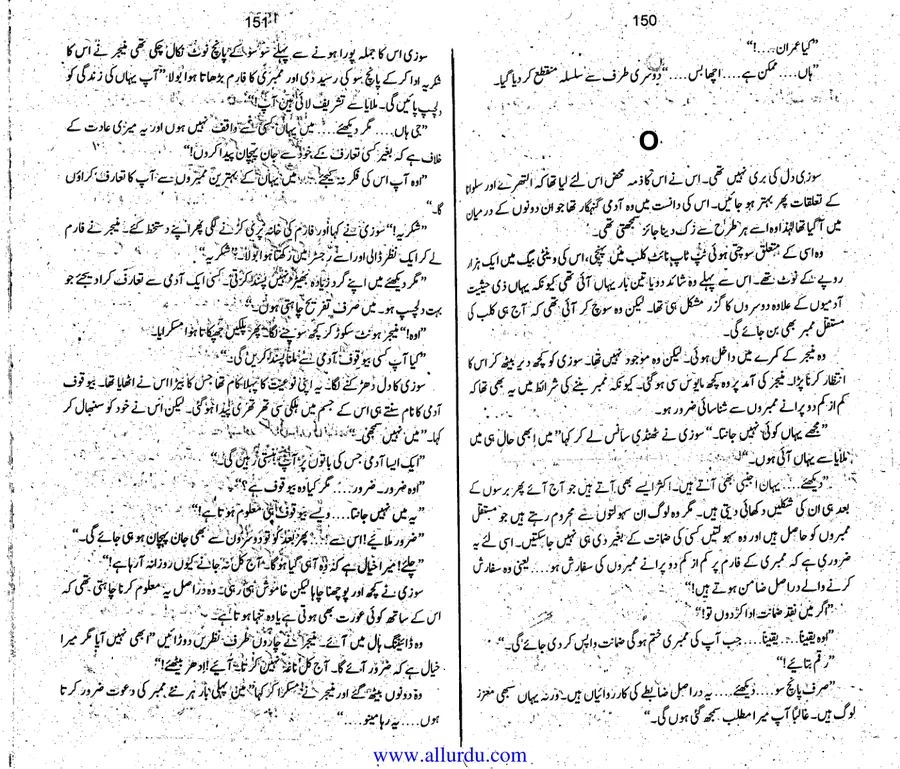 150
”کیا عمران....!“
”ہاں.... ممکن ہے.... اچھا بس....“ دوسری طرف سے سلسلہ منقطع کر دیا گیا۔
O
سوزی دل کی بری نہیں تھی۔ اس نے اس کا ذمہ محض اس لئے لیا تھا کہ التھرے اور سلویا
کے تعلقات پھر بہتر ہو جائیں۔ اس کی دانست میں وہ آدمی گنہگار تھا جو ان دونوں کے درمیان
میں آ گیا تھا لہٰذا وہ اسے ہر طرح سے زک دینا جائز سمجھتی تھی۔
وہ اسی کے متعلق سوچتی ہوئی ٹپ ٹاپ نائٹ کلب میں پہنچی، اس کی وینٹی بیگ میں ایک ہزار
روپے کے نوٹ تھے۔ اس سے پہلے وہ شائد دو یا تین بار یہاں آئی تھی کیونکہ یہاں ذی حیثیت
آدمیوں کے علاوہ دوسروں کا گزر مشکل ہی تھا۔ لیکن وہ سوچ کر آئی تھی کہ آج ہی کلب کی
مستقل ممبر بھی بن جائے گی۔
وہ منیجر کے کمرے میں داخل ہوئی۔ لیکن وہ موجود نہیں تھا۔ سوزی کو کچھ دیر بیٹھ کر اس کا
انتظار کرنا پڑا۔ منیجر کی آمد پر وہ کچھ مایوس سی ہو گئی۔ کیونکہ ممبر بننے کی شرائط میں یہ بھی تھا کہ
کم از کم دو پرانے ممبروں سے شناسائی ضرور ہو۔
”مجھے یہاں کوئی نہیں جانتا۔“ سوزی نے ٹھنڈی سانس لے کر کہا ”میں ابھی حال ہی میں
ملایا سے یہاں آئی ہوں۔“
”دیکھئے.... یہاں اجنبی بھی آتے ہیں۔ اکثر ایسے بھی آتے ہیں جو آج آئے پھر برسوں کے
بعد ہی ان کی شکلیں دکھائی دیتی ہیں۔ مگر وہ لوگ ان سہولتوں سے محروم رہتے ہیں جو مستقل
ممبروں کو حاصل ہیں اور وہ سہولتیں کسی کی ضمانت کے بغیر دی ہی نہیں جا سکتیں۔ اسی لئے یہ
ضروری ہے کہ ممبری کے فارم پر کم از کم دو پرانے ممبروں کی سفارش ہو.... یعنی وہ سفارش
کرنے والے دراصل ضامن ہوتے ہیں!“
”اگر میں نقد ضمانت ادا کر دوں تو!“
”اوہ یقیناً.... یقیناً.... جب آپ کی ممبری ختم ہو گی ضمانت واپس کر دی جائے گی۔“
”رقم بتائیے!“
”صرف پانچ سو.... دیکھئے.... یہ دراصل ضابطے کی کارروائیاں ہیں۔ ورنہ یہاں سبھی معزز
لوگ ہیں۔ غالباً آپ میرا مطلب سمجھ گئی ہوں گی۔“
151
سوزی اس کا جملہ پورا ہونے سے پہلے سو سو کے پانچ نوٹ نکال چکی تھی منیجر نے اس کا
شکریہ ادا کر کے پانچ سو کی رسید دی اور ممبری کا فارم بڑھاتا ہوا بولا ”آپ یہاں کی زندگی کو
دلچسپ پائیں گی۔ ملایا سے تشریف لائی ہیں آپ!“
”جی ہاں.... مگر دیکھئے.... میں یہاں کسی سے واقف نہیں ہوں اور یہ میری عادت کے
خلاف ہے کہ بغیر کسی تعارف کے خود سے جان پہچان پیدا کروں!“
”اوہ آپ اس کی فکر نہ کیجئے.... میں یہاں کے بہترین ممبروں سے آپ کا تعارف کراؤں
گا۔“
”شکریہ!“ سوزی نے کہا اور فارم کی خانہ پُری کرنے لگی پھر اپنے دستخط کئے۔ منیجر نے فارم
لے کر ایک نظر ڈالی اور اسے رجسٹر میں رکھتا ہوا بولا۔ ”شکریہ“
”مگر دیکھئے میں اپنے گرد زیادہ بھیڑ نہیں پسند کرتی۔ کسی ایک آدمی سے تعارف کرا دیجئے جو
بہت دلچسپ ہو۔ میں صرف تفریح چاہتی ہوں۔“
”اوہ!“ منیجر ہونٹ سکوڑ کر کچھ سوچنے لگا۔ پھر پلکیں جھپکاتا ہوا مسکرایا۔
”کیا آپ کسی بیوقوف آدمی سے ملنا پسند کریں گی۔“
سوزی کا دل دھڑکنے لگا۔ یہ اپنی نوعیت کا پہلا کام تھا جس کا بیڑا اس نے اٹھایا تھا۔ بیوقوف
آدمی کا نام سنتے ہی اس کے جسم میں ہلکی سی تھرتھری پیدا ہو گئی۔ لیکن اس نے خود کو سنبھال کر
کہا۔ ”میں نہیں سمجھی۔“
”ایک ایسا آدمی جس کی باتوں پر آپ ہنستی رہیں گی۔“
”اوہ ضرور۔ ضرور.... مگر کیا وہ بیوقوف ہے؟“
”یہ میں نہیں جانتا.... ویسے بیوقوف ہی معلوم ہوتا ہے!“
”ضرور ملائیے! اس سے.... پھر بعد کو تو دوسروں سے بھی جان پہچان ہو ہی جائے گی۔“
”چلئے! میرا خیال ہے کہ وہ آ ہی گیا ہو گا۔ آج کل نہ جانے کیوں روزانہ آ رہا ہے!“
سوزی نے کچھ اور پوچھنا چاہا لیکن خاموش ہی رہی۔ وہ دراصل یہ معلوم کرنا چاہتی تھی کہ
اس کے ساتھ کوئی عورت بھی ہوتی ہے یا وہ تنہا ہوتا ہے۔
وہ ڈائننگ ہال میں آئے۔ منیجر نے چاروں طرف نظریں دوڑائیں ”ابھی نہیں آیا مگر میرا
خیال ہے کہ ضرور آئے گا۔ آج کل ناغہ نہیں کرتا۔ آئیے! ادھر بیٹھئے!“
وہ دونوں بیٹھ گئے اور منیجر نے مسکرا کر کہا ”میں پہلی بار ہر نئے ممبر کی دعوت ضرور کرتا
ہوں.... یہ رہا مینو....“
www.allurdu.com